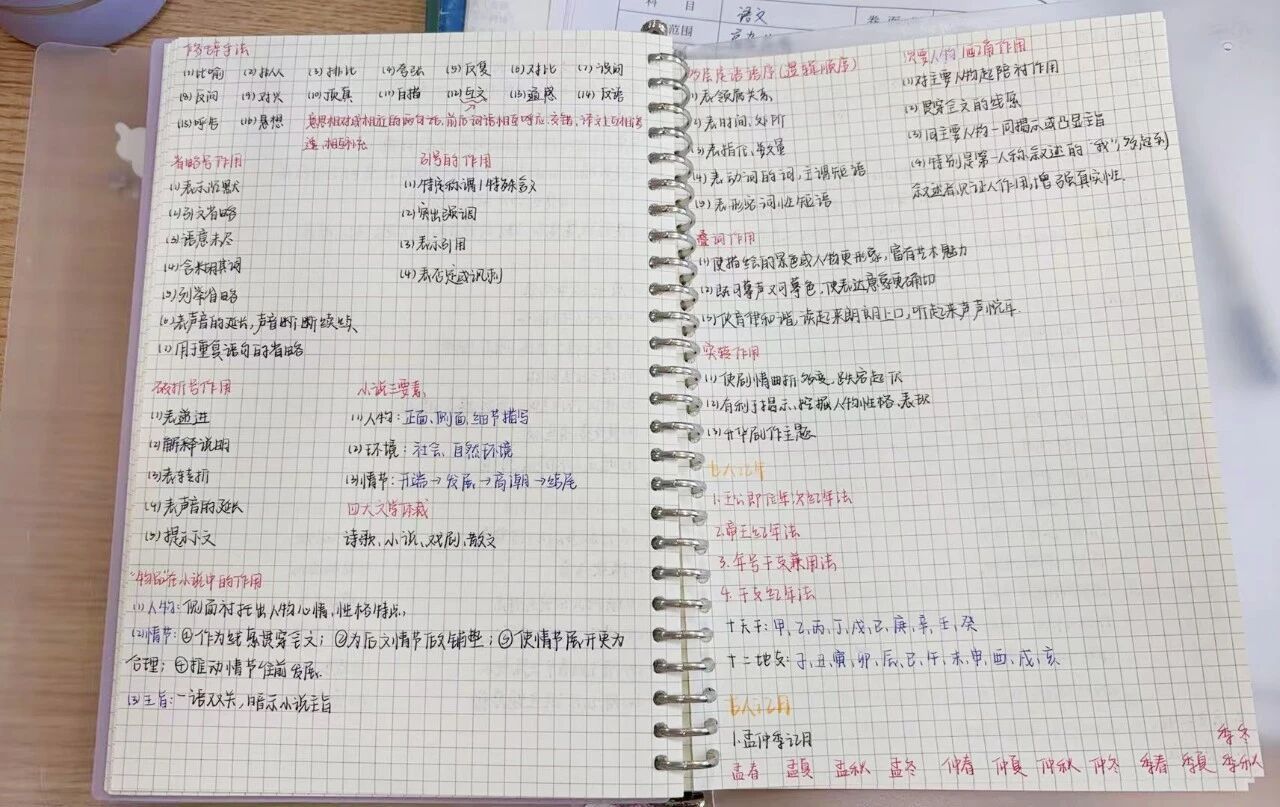 科 目
语文
范围
修辞手法
(1)比喻 (2)拟人 (3)排比 (4)夸张 (5)反复 (6)对比 (7)设问
(8)反问 (9)对偶 (10)顶真 (11)白描 (12)互文 (13)通感 (14)反语
(15)呼告 (16)联想
意思相对或相近的两句话,前后词语相互呼应,交错,
省略号作用
(1)表示沉默
(2)引文省略
(3)语意未尽
(4)
(5)列举省略
(6)表声音的延长,声音断断续续
(7)用于重复语句的省略
引号的作用
(1)特定称谓/特殊含义
(2)突出强调
(3)表示引用
(4)表否定或讽刺
破折号作用
(1)表递进
(2)解释说明
(3)表转折
(4)表声音的延长
(5)提示下文
小说三要素
(1)人物:正面、侧面、细节描写
(2)环境:社会、自然环境
(3)情节:开端→发展→高潮→结尾
四大文学体裁
诗歌、小说、戏剧、散文
物品在小说中的作用
(1)人物:侧面衬托出人物心情,性格特点,
(2)情节:①作为线索贯穿全文;②为后文情节做铺垫;③使情节展开更为
合理;④推动情节往前发展.
(3)主旨:一语双关,暗示小说主旨
多层定语语序(逻辑顺序)
(1)表领属关系
(2)表时间、处所
(3)表指代、数量
(4)表动词的词,主谓短语
(5)表形容词性短语
次要人物1配角作用
(1)对主要人物起陪衬作用
(2)贯穿全文的线索
(3)同主要人物一同揭示或凸显主旨
(4)特别是第一人称叙述的“我”,
叙述者见证人作用,增强真实性.
叠词作用
(1)使描绘的景色或人物更形象,富有艺术魅力
(2)既可摹声又可摹色,使表达意象更确切
(3)使音律和谐,读起来朗朗上口,听起来声声悦耳.
突转作用
(1)使剧情曲折多变,跌宕起伏
(2)有利于揭示、挖掘人物性格、表现
(3)升华剧作主题
古人记年
1.王公即位年次纪年法
2.帝王纪年法
3.年号干支兼用法
4.干支纪年法
十天干:甲、乙、丙、丁、戊、己、庚、辛、壬、癸
十二地支:子、丑、寅、卯、辰、巳、午、未、申、酉、戌、亥
古人记月
1.孟仲季记月
孟春 孟夏 孟秋 孟冬 仲春 仲夏 仲秋 仲冬 季春 季夏 季秋
季冬